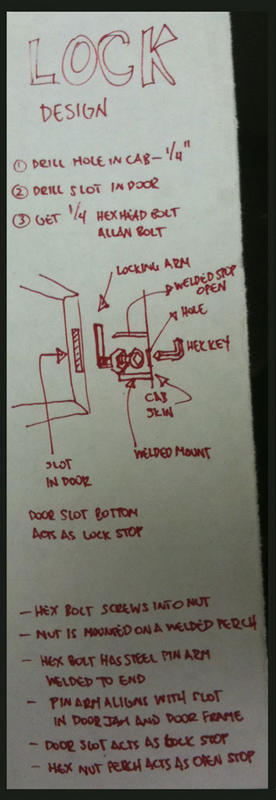 LOCK
DESIGN
① DRILL HOLE IN CAB - 1/4"
② DRILL SLOT IN DOOR
③ GET 1/4 HEX HEAD BOLT
ALLAN BOLT
LOCKING ARM
WELDED STOP
OPEN
HOLE
HEX KEY
CAB
SKIN
WELDED MOUNT
SLOT
IN DOOR
DOOR SLOT BOTTOM
ACTS AS LOCK STOP
- HEX BOLT SCREWS INTO NUT
- NUT IS MOUNTED ON A WELDED PERCH
- HEX BOLT HAS STEEL PIN ARM
WELDED TO END
- PIN ARM ALIGNS WITH SLOT
IN DOOR JAM AND DOOR FRAME
- DOOR SLOT ACTS AS LOCK STOP
- HEX NUT PERCH ACTS AS OPEN STOP